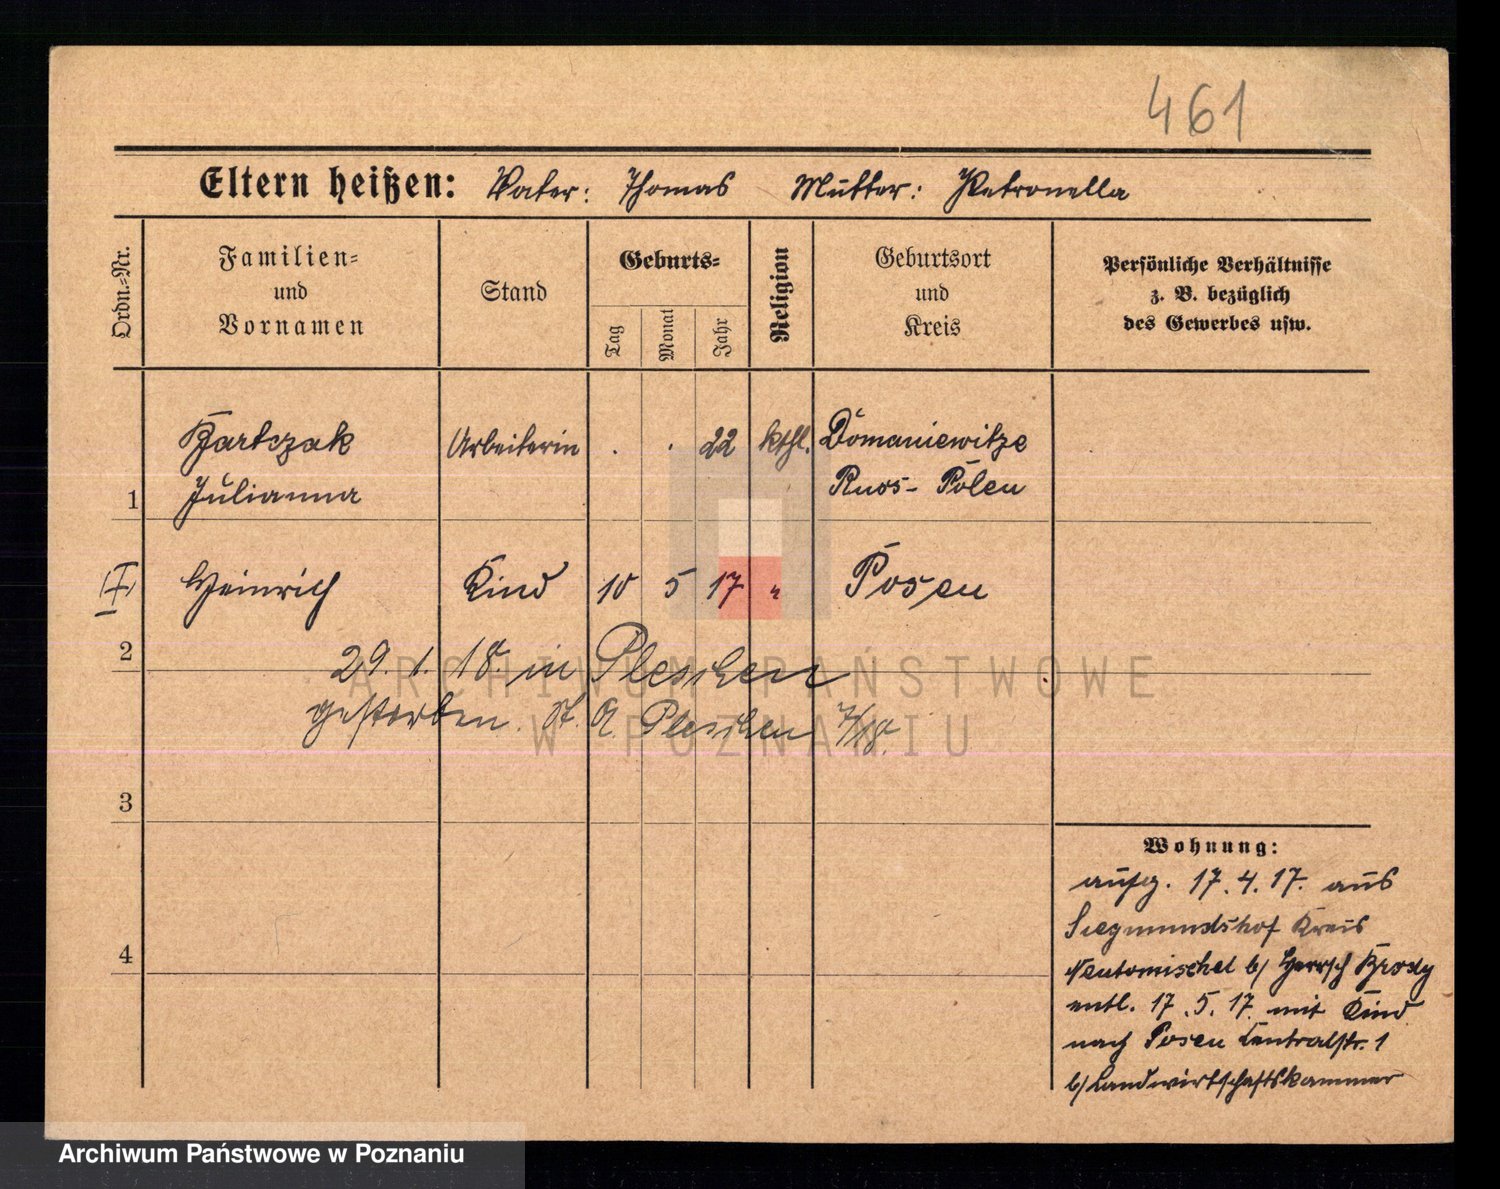 461
Eltern heißen: Vater: Thomas Mutter: Petronella
Ordn.-Nr.
Familien-
und
Vornamen
Stand
Geburts-
Tag
Monat
Jahr
Religion
Geburtsort
und
Kreis
Persönliche Verhältnisse
z. B. bezüglich
des Gewerbes usw.
Bartczak Arbeiterin . . 22 kthl. Domaniewitze
1 Julianna Russ- Polen
Heinrich Kind 10 5 17 " Posen
2
29. 1. 18. in Pleschen
gestorben. St. A. Pleschen 7/18.
3
4
Wohnung:
aufg. 17.4.17. aus
Siegmundshof Kreis
Neutomischel b/ Herrsch Brody
entl. 17.5.17. mit Kind
nach Posen Centralstr. 1
b/ Landwirtschaftskammer
ARCHIWUM PAŃSTWOWE
W POZNANIU
Archiwum Państwowe w Poznaniu